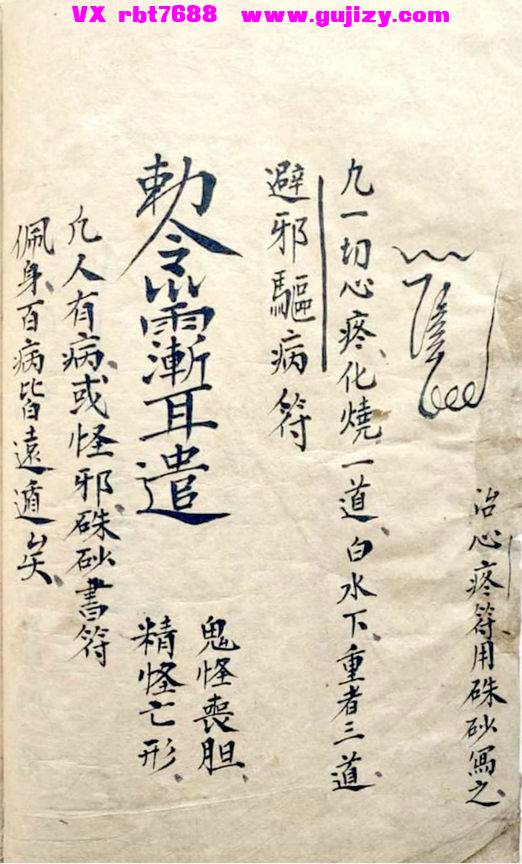 VX rbt7688 www.gujizy.com
治心疼符用硃砂寫之
凡一切心疼化燒一道白水下重者三道
避邪驅病符
勅令
雷漸耳遣
鬼怪喪胆
精怪亡形
凡人有病或怪邪硃砂書符
佩身百病皆遠遁矣